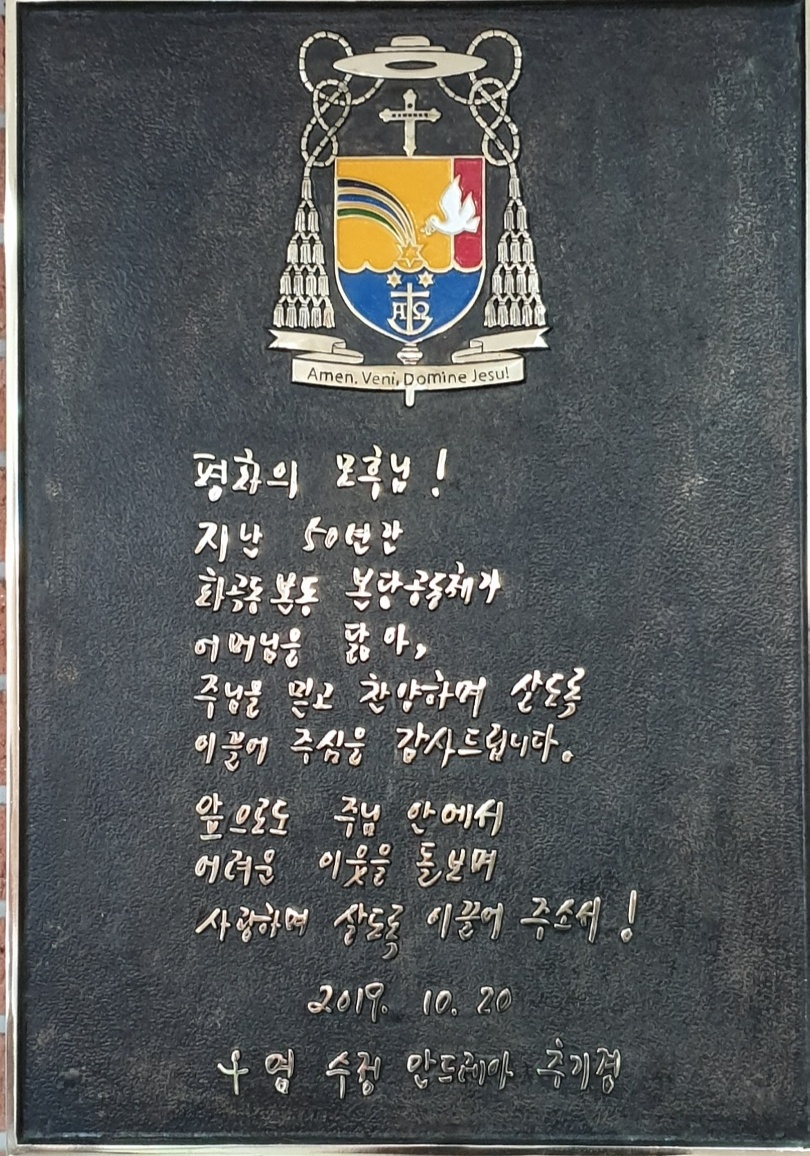 Amen. Veni, Domine Jesu!
평화의 모후님!
지난 50년간
화곡동본동 본당공동체가
어머님을 닮아,
주님을 믿고 찬양하며 살도록
이끌어 주심을 감사드립니다.
앞으로도 주님 안에서
어려운 이웃을 돌보며
사랑하며 살도록 이끌어 주소서!
2019. 10. 20
염 수정 안드레아 추기경